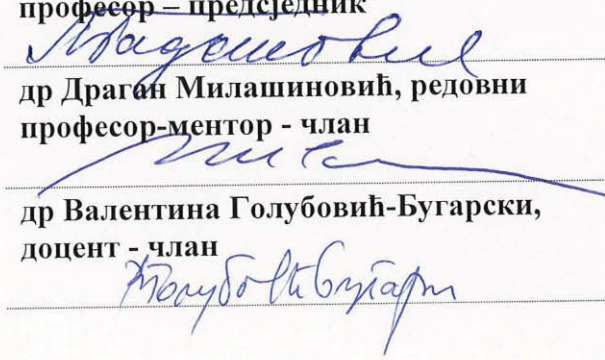 професор – предсједник
др Драган Милашиновић, редовни
професор-ментор - члан
др Валентина Голубовић-Бугарски,
доцент - члан